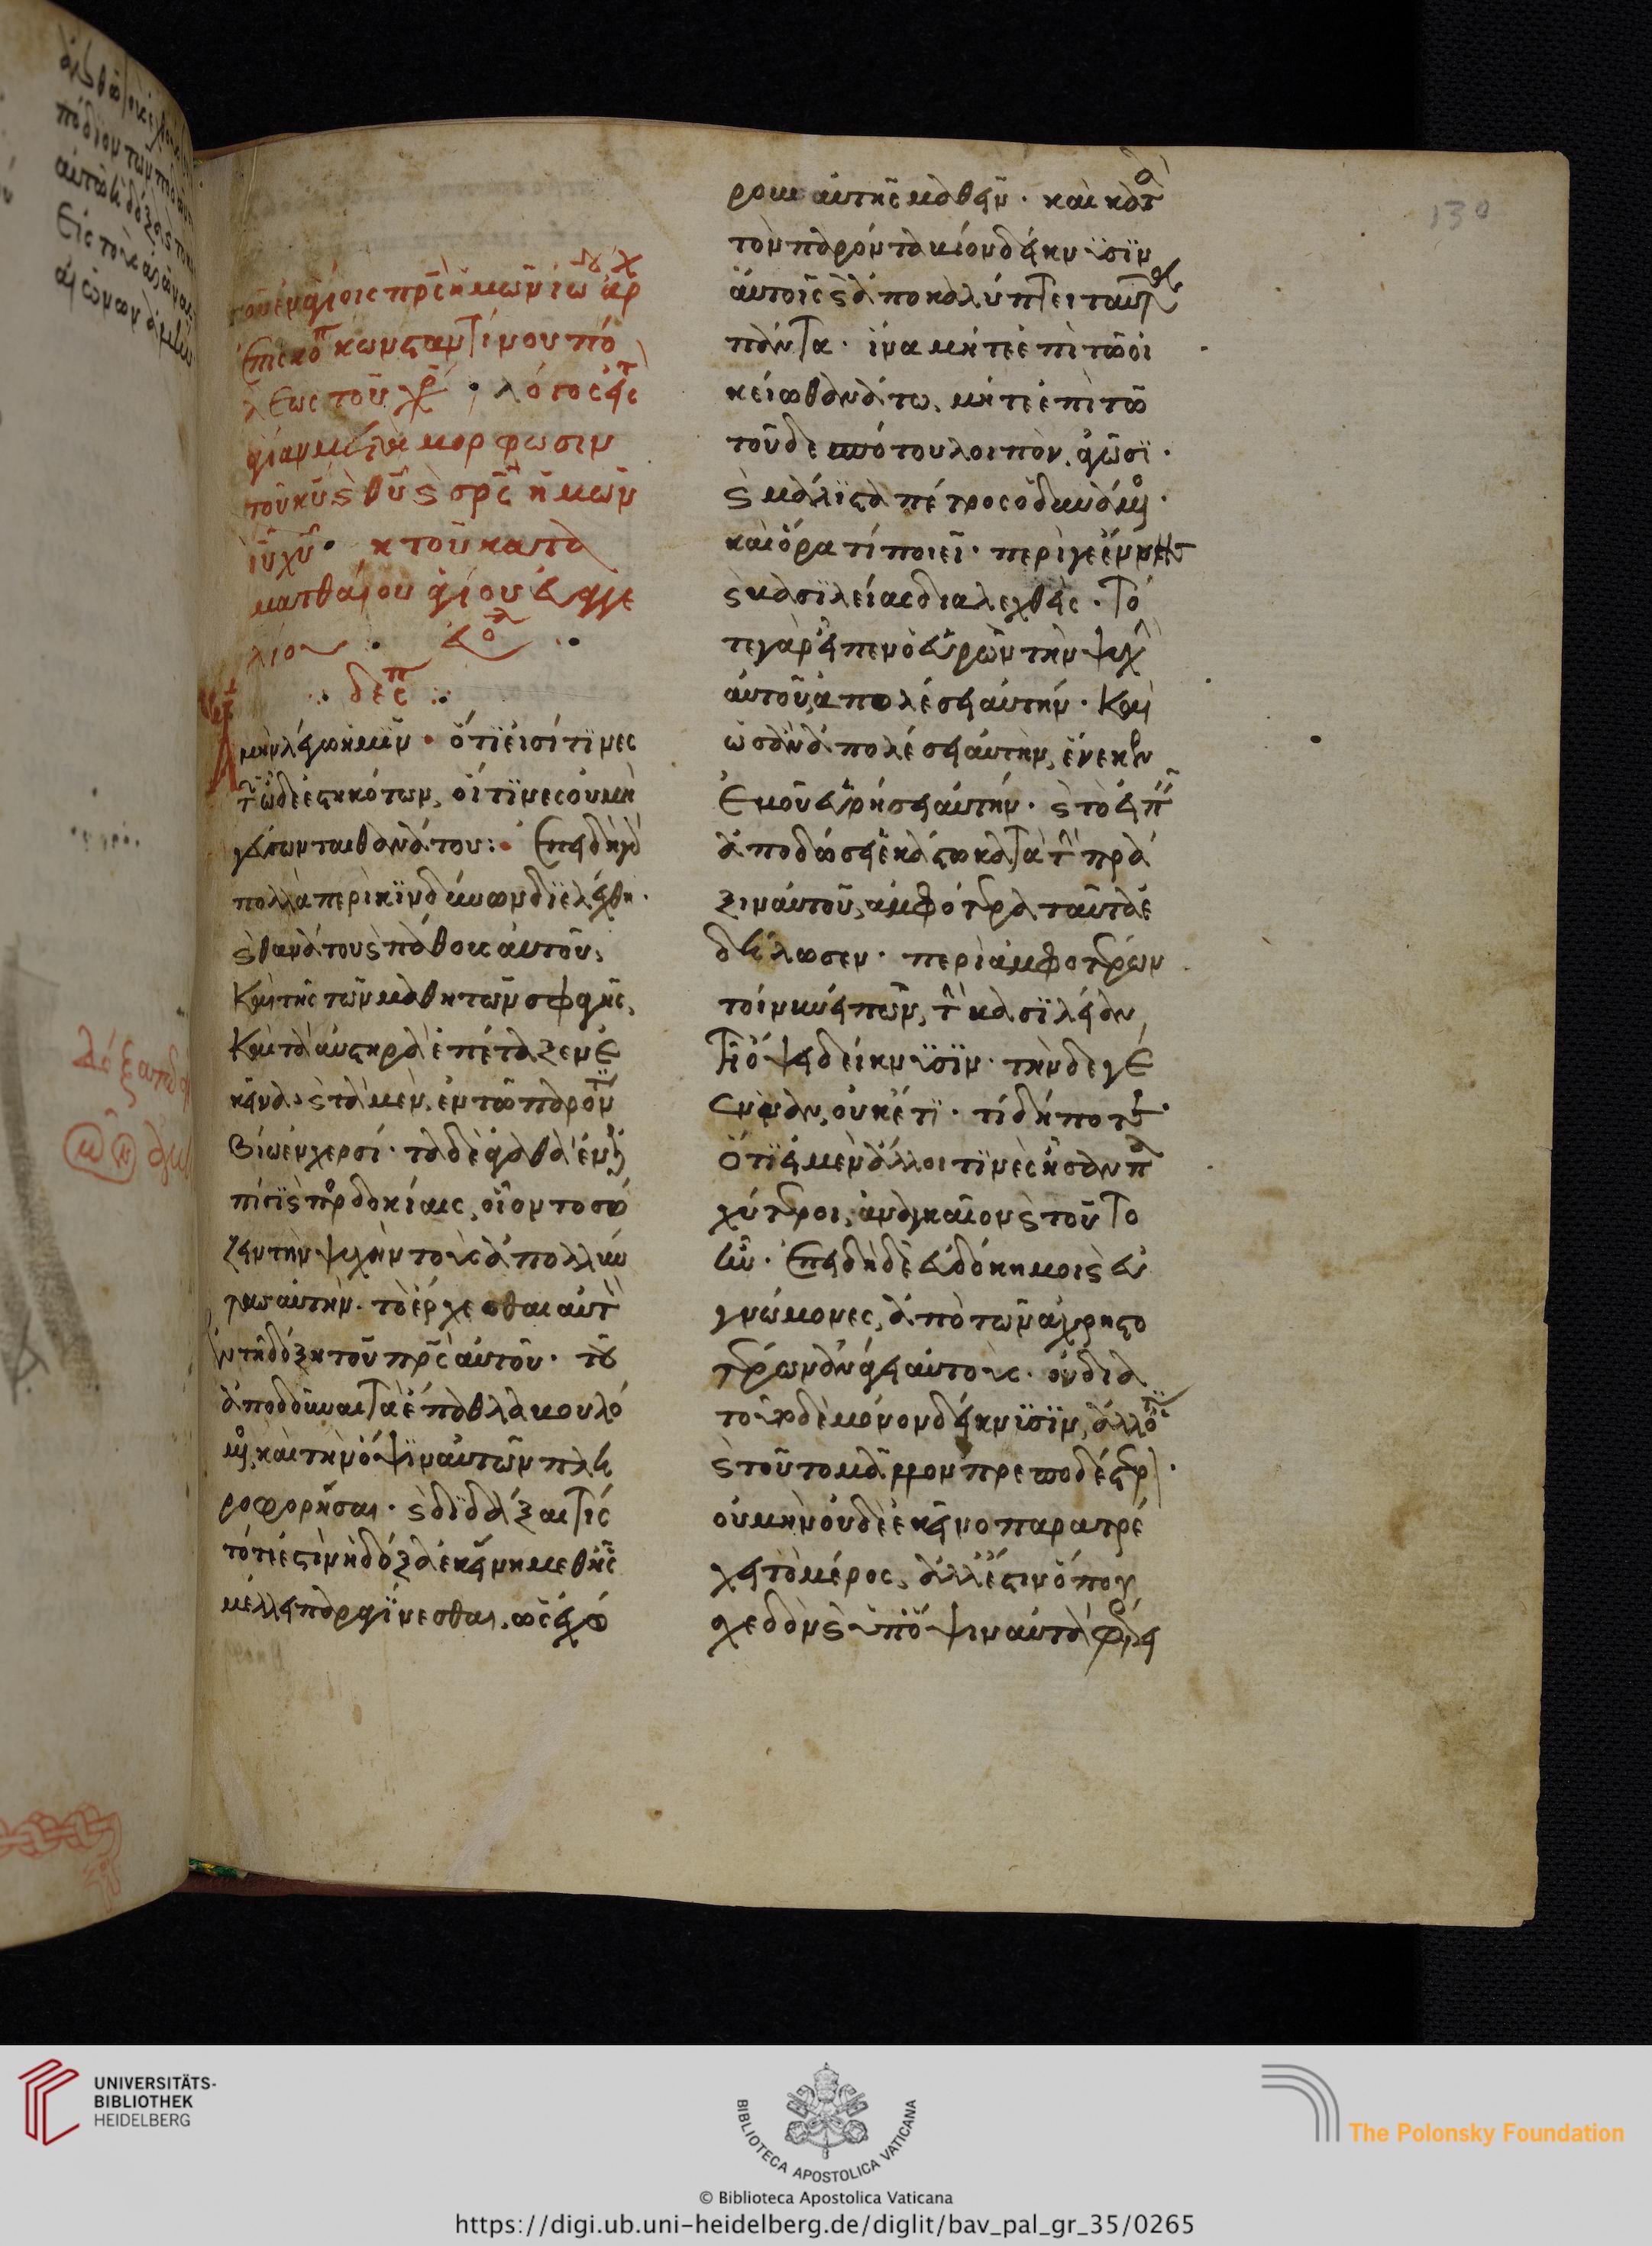 τοῦ ἐν ἁγίοις πρς ἡμῶν ἰω ἀρχ
ἐπισκοπ κωνσταντίνουπό
λεως τοῦ χρ · λόγος εἰς τ
ἁγίαν μεταμορφωσιν
τοῦ κυ ς θυ ς σρς ἡμῶν
ιυ χυ · κ τοῦ κατὰ
ματθαίου ἁγίου εὐαγγε
λίου · εὐλο
δεσπ
Ἀμὴν λέγω ὑμῖν · ὅτι εἰσί τινες
τῶν ὧδε ἑστηκότων, οἵτινες οὐ μὴ
γεύσωνται θανάτου: Ἐπειδὴ γὰρ
πολλὰ περὶ κινδύνων διελέχθη ·
ς θανάτου ς πάθους αὐτοῦ,
Καὶ τῆς τῶν μαθητῶν σφαγῆς,
Καὶ τὰ αὐστηρὰ ἐπέταξεν ἐ
κεῖνα · ς τὰ μὲν, ἐν τῶ παρόντι
βίω ἐν χερσί · τὰ δὲ ἀγαθὰ ἐν ἐλ
πίσι ς προσδοκίαις, οἷον τὸ σώ
ζειν τὴν ψυχὴν τοὺς ἀπολλύ
ντας αὐτήν · τὸ ἔρχεσθαι αὐτὸν
ἐν τῆ δόξη τοῦ πρς αὐτοῦ · τοῦ
ἀποδοῦναι τὰ ἔπαθλα βουλό
μενος, καὶ τὴν ὄψιν αὐτῶν πλη
ροφορῆσαι · ς διδάξαι τίς
ποτέ ἐστιν ἡ δόξα ἐκείνη μεθ ἧς
μέλλει παραγίνεσθαι, ὡς ἐχώ
ρουν αὐτῆς μαθεῖν · καὶ κατὰ
τὸν παρόντα βίον δείκνυσιν
αὐτοῖς ς ἀποκαλύπτει ταύτην
πάντα · ἵνα μήτε ἐπὶ τῶ οἰ
κείω θανάτω, μήτε ἐπὶ τῶ
τοῦ δεσπότου λοιπὸν, ἀλγῶσι ·
ς μάλιστα πέτρος ὀδυνώμενος ·
καὶ ὅρα τί ποιεῖ · περὶ γεέννης
ς βασιλείας διαλεχθείς · τό
τε γὰρ εἰπεῖν ὁ εὑρὼν τὴν ψυχὴν
αὐτοῦ, ἀπολέσει αὐτήν · Καὶ
ὡς ἂν ἀπολέσει αὐτὴν, ἕνεκεν
Ἐμοῦ εὑρήσει αὐτήν · ς τὸ εἰπεῖν
ἀποδώσει ἑκάστω κατὰ τὴν πρᾶ
ξιν αὐτοῦ, ἀμφότερα ταῦτα ἐ
δήλωσεν · περὶ ἀμφοτέρων
τοίνυν εἰπὼν, τὴν βασιλείαν,
τῆ ὄψει δείκνυσιν · τὴν δὲ γέ
ενναν, οὐκέτι · τί δήποτε ·
Ὅτι εἰ μὲν ἄλλοι τινὲς ἦσαν πα
χύτεροι, ἀναγκαῖον ς τοῦτο
ἦν · Ἐπειδὴ δὲ εὐδόκιμοι ς εὐ
γνώμονες, ἀπὸ τῶν χρηστο
τέρων ἐνάγει αὐτούς · οὐ διὰ
τοῦτο δὲ μόνον δείκνυσιν, ἀλλ ὅτι
ς τοῦτο μᾶλλον πρεπωδέστερον ·
οὐ μὴν οὐδὲ ἐκεῖνο παρατρέ
χει τὸ μέρος, ἀλλ ἔστιν ὅπου
σχεδὸν ς ὑπ ὄψιν αὐτὰ φέρει
130
UNIVERSITÄTS-
BIBLIOTHEK
HEIDELBERG
BIBLIOTECA APOSTOLICA VATICANA
© Biblioteca Apostolica Vaticana
The Polonsky Foundation
https://digi.ub.uni-heidelberg.de/diglit/bav_pal_gr_35/0265